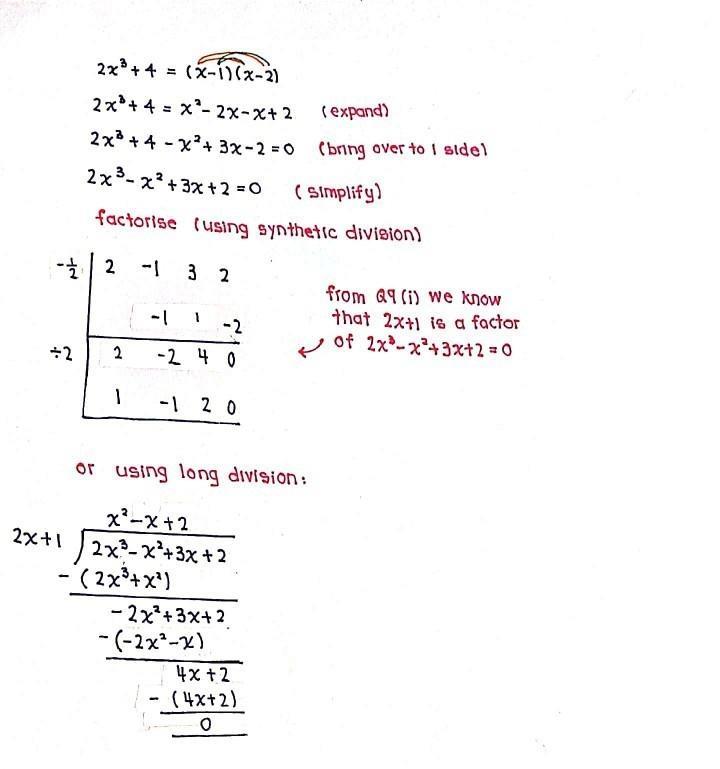 2x³ + 4 = (x-1)(x-2)
2x³ + 4 = x² - 2x - x + 2 (expand)
2x³ + 4 - x² + 3x - 2 = 0 (bring over to 1 side)
2x³ - x² + 3x + 2 = 0 (simplify)
factorise (using synthetic division)
-1/2 | 2 -1 3 2
-1 1 -2
÷2 | 2 -2 4 0
1 -1 2 0
from Q9 (i) we know
that 2x+1 is a factor
of 2x³-x²+3x+2=0
or using long division:
x² - x + 2
2x+1 √ 2x³ - x² + 3x + 2
- (2x³ + x²)
- 2x² + 3x + 2
- (-2x² - x)
4x + 2
- (4x+2)
0